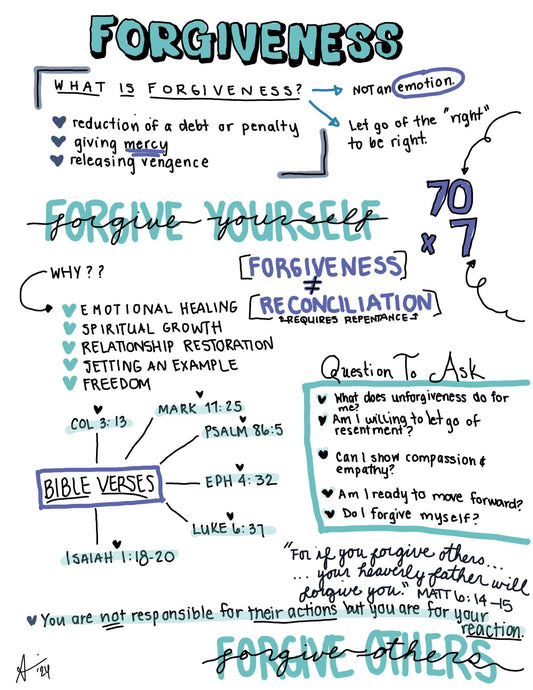 FORGIVENESS
WHAT IS FORGIVENESS?
NOT an emotion.
Let go of the "right"
to be right.
reduction of a debt or penalty
giving mercy
releasing vengence
70
x 7
FORGIVE YOURSELF
forgive yourself
WHY??
EMOTIONAL HEALING
SPIRITUAL GROWTH
RELATIONSHIP RESTORATION
SETTING AN EXAMPLE
FREEDOM
[FORGIVENESS]
≠
[RECONCILIATION]
REQUIRES REPENTANCE
Question To Ask
What does unforgiveness do for
me?
Am I willing to let go of
resentment?
Can I show compassion &
empathy?
Am I ready to move forward?
Do I forgive myself?
BIBLE VERSES
COL 3:13
MARK 11:25
PSALM 86:5
EPH 4:32
LUKE 6:37
ISAIAH 1:18-20
"For if you forgive others...
... your heavenly father will
forgive you." MATT 6:14-15
You are not responsible for their actions but you are for your
reaction.
FORGIVE OTHERS
forgive others
'24